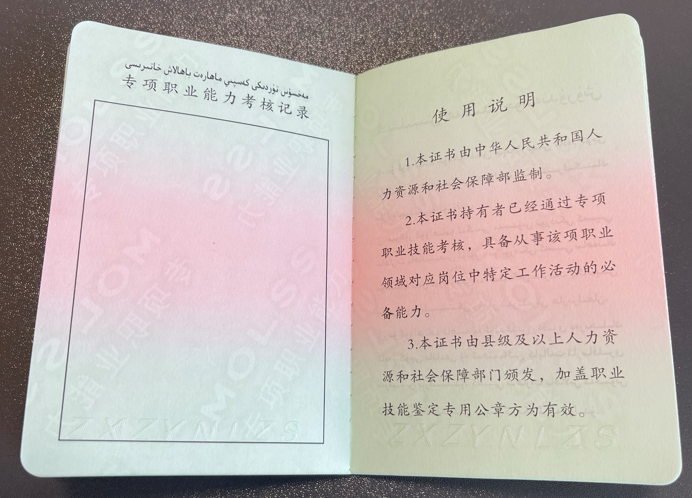 مەخسۇس تۈردىكى كەسپىي ماھارەت باھالاش خاتىرىسى
专项职业能力考核记录
使用说明
1.本证书由中华人民共和国人
力资源和社会保障部监制。
2.本证书持有者已经通过专项
职业技能考核，具备从事该项职业
领域对应岗位中特定工作活动的必
备能力。
3.本证书由县级及以上人力资
源和社会保障部门颁发，加盖职业
技能鉴定专用公章方为有效。